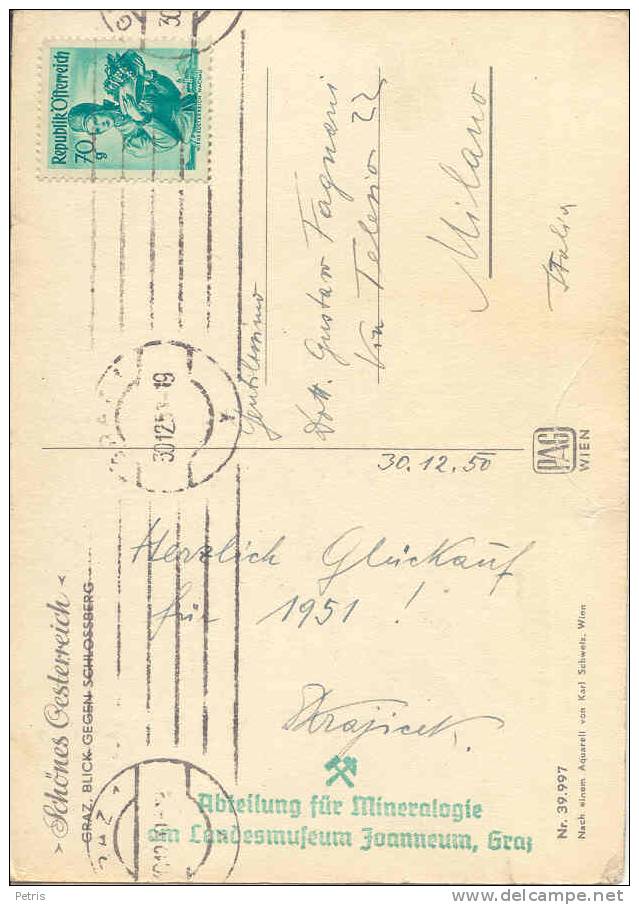 » Schönes Oesterreich «
GRAZ. BLICK GEGEN SCHLOSSBERG
Herzlich Glückauf
für 1951 !
Krajicek.
Abteilung für Mineralogie
am Landesmuseum Joanneum, Graz
Nr. 39.997
Nach einem Aquarell von Karl Schwetz, Wien
30.12.50
PAG
WIEN
Republik Österreich
70
g
GRAZ
30.12.5 -19
Gentilissimo
Dott. Gustavo Fagnani
Via Telesio 22
Milano
Italia
Petris
www.delcampe.net